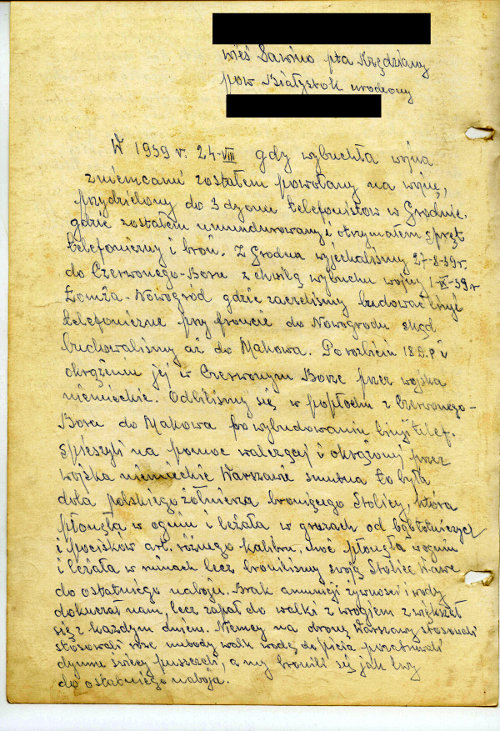 wieś Sawino pta Krzędziany
pow Białystok urodzony
W 1939 r. 24-VIII gdy wybuchła wojna
z niemcami zostałem powołany na wojnę,
przydzielony do 3 dyonu telefonistów w Grodnie.
gdzie zostałem umundurowany i otrzymałem sprzęt
telefoniczny i broń. Z Grodna wyjechaliśmy 27-8-39r.
do Czerwonego-Boru z chwilą wybuchu wojny 1-IX-39r
Łomża-Nowogród gdzie zaczeliśmy budować linje
telefoniczne przy froncie do Nowogrodu skąd
budowaliśmy aż do Makowa. Po rozbiciu 18 D.P i
okrążeniu jej w Czerwonym Borze przez wojska
niemieckie. Odbiliśmy się w popłochu z Czerwonego-
Boru do Makowa po wybudowaniu linji telef.
spieszyli na pomoc walczącej i okrążonej przez
wojska niemieckie Warszawe smutna to była
dola polskiego żołnierza broniącego Stolicy, która
płonęła w ogniu i leżała w gruzach od bomb
i pocisków art. różnego kalibru, choć płonęła w ogniu
i leżała w ruinach lecz broniliśmy swoją Stolice Wawe
do ostatniego naboju. Brak amunicji żywności i wody
dokuczał nam, lecz zapał do walki z wrogiem zwiększał
się z każdym dniem. Niemcy na obronę Warszawy stosowali
stosowali różne metody walk wodę do picia
dymne świece puszczali, a my bronili się jak lwy
do ostatniego naboja.